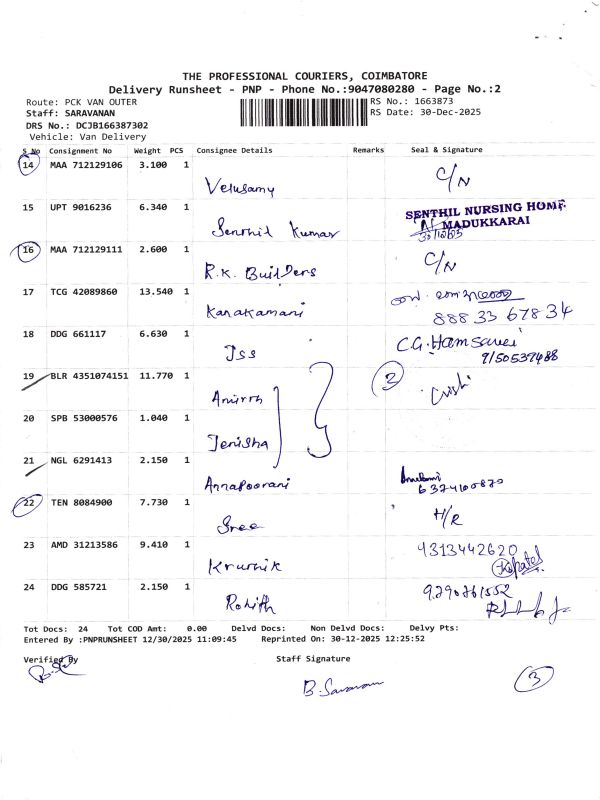 THE PROFESSIONAL COURIERS, COIMBATORE
Delivery Runsheet - PNP - Phone No.:9047080280 - Page No.:2
Route: PCK VAN OUTER
RS No.: 1663873
Staff: SARAVANAN
RS Date: 30-Dec-2025
DRS No.: DCJB166387302
Vehicle: Van Delivery
S No Consignment No Weight PCS Consignee Details Remarks Seal & Signature
14 MAA 712129106 3.100 1 Velusamy C/N
15 UPT 9016236 6.340 1 Senthil Kumar
SENTHIL NURSING HOME
MADUKKARAI
16 MAA 712129111 2.600 1 R.K. Builders C/N
17 TCG 42089860 13.540 1 Kanakamani
88833 67834
18 DDG 661117 6.630 1 Jss
9150537488
19 BLR 4351074151 11.770 1 3
20 SPB 53000576 1.040 1 Jenisha
21 NGL 6291413 2.150 1 Annapoorani
6374100870
22 TEN 8084900 7.730 1 Sree H/R
23 AMD 31213586 9.410 1 Krutnik
9313442620
24 DDG 585721 2.150 1 Rohith
Tot Docs: 24 Tot COD Amt: 0.00 Delvd Docs: Non Delvd Docs: Delvy Pts:
Entered By :PNPRUNSHEET 12/30/2025 11:09:45 Reprinted On: 30-12-2025 12:25:52
Verified By
Staff Signature
B. Saravanan
3